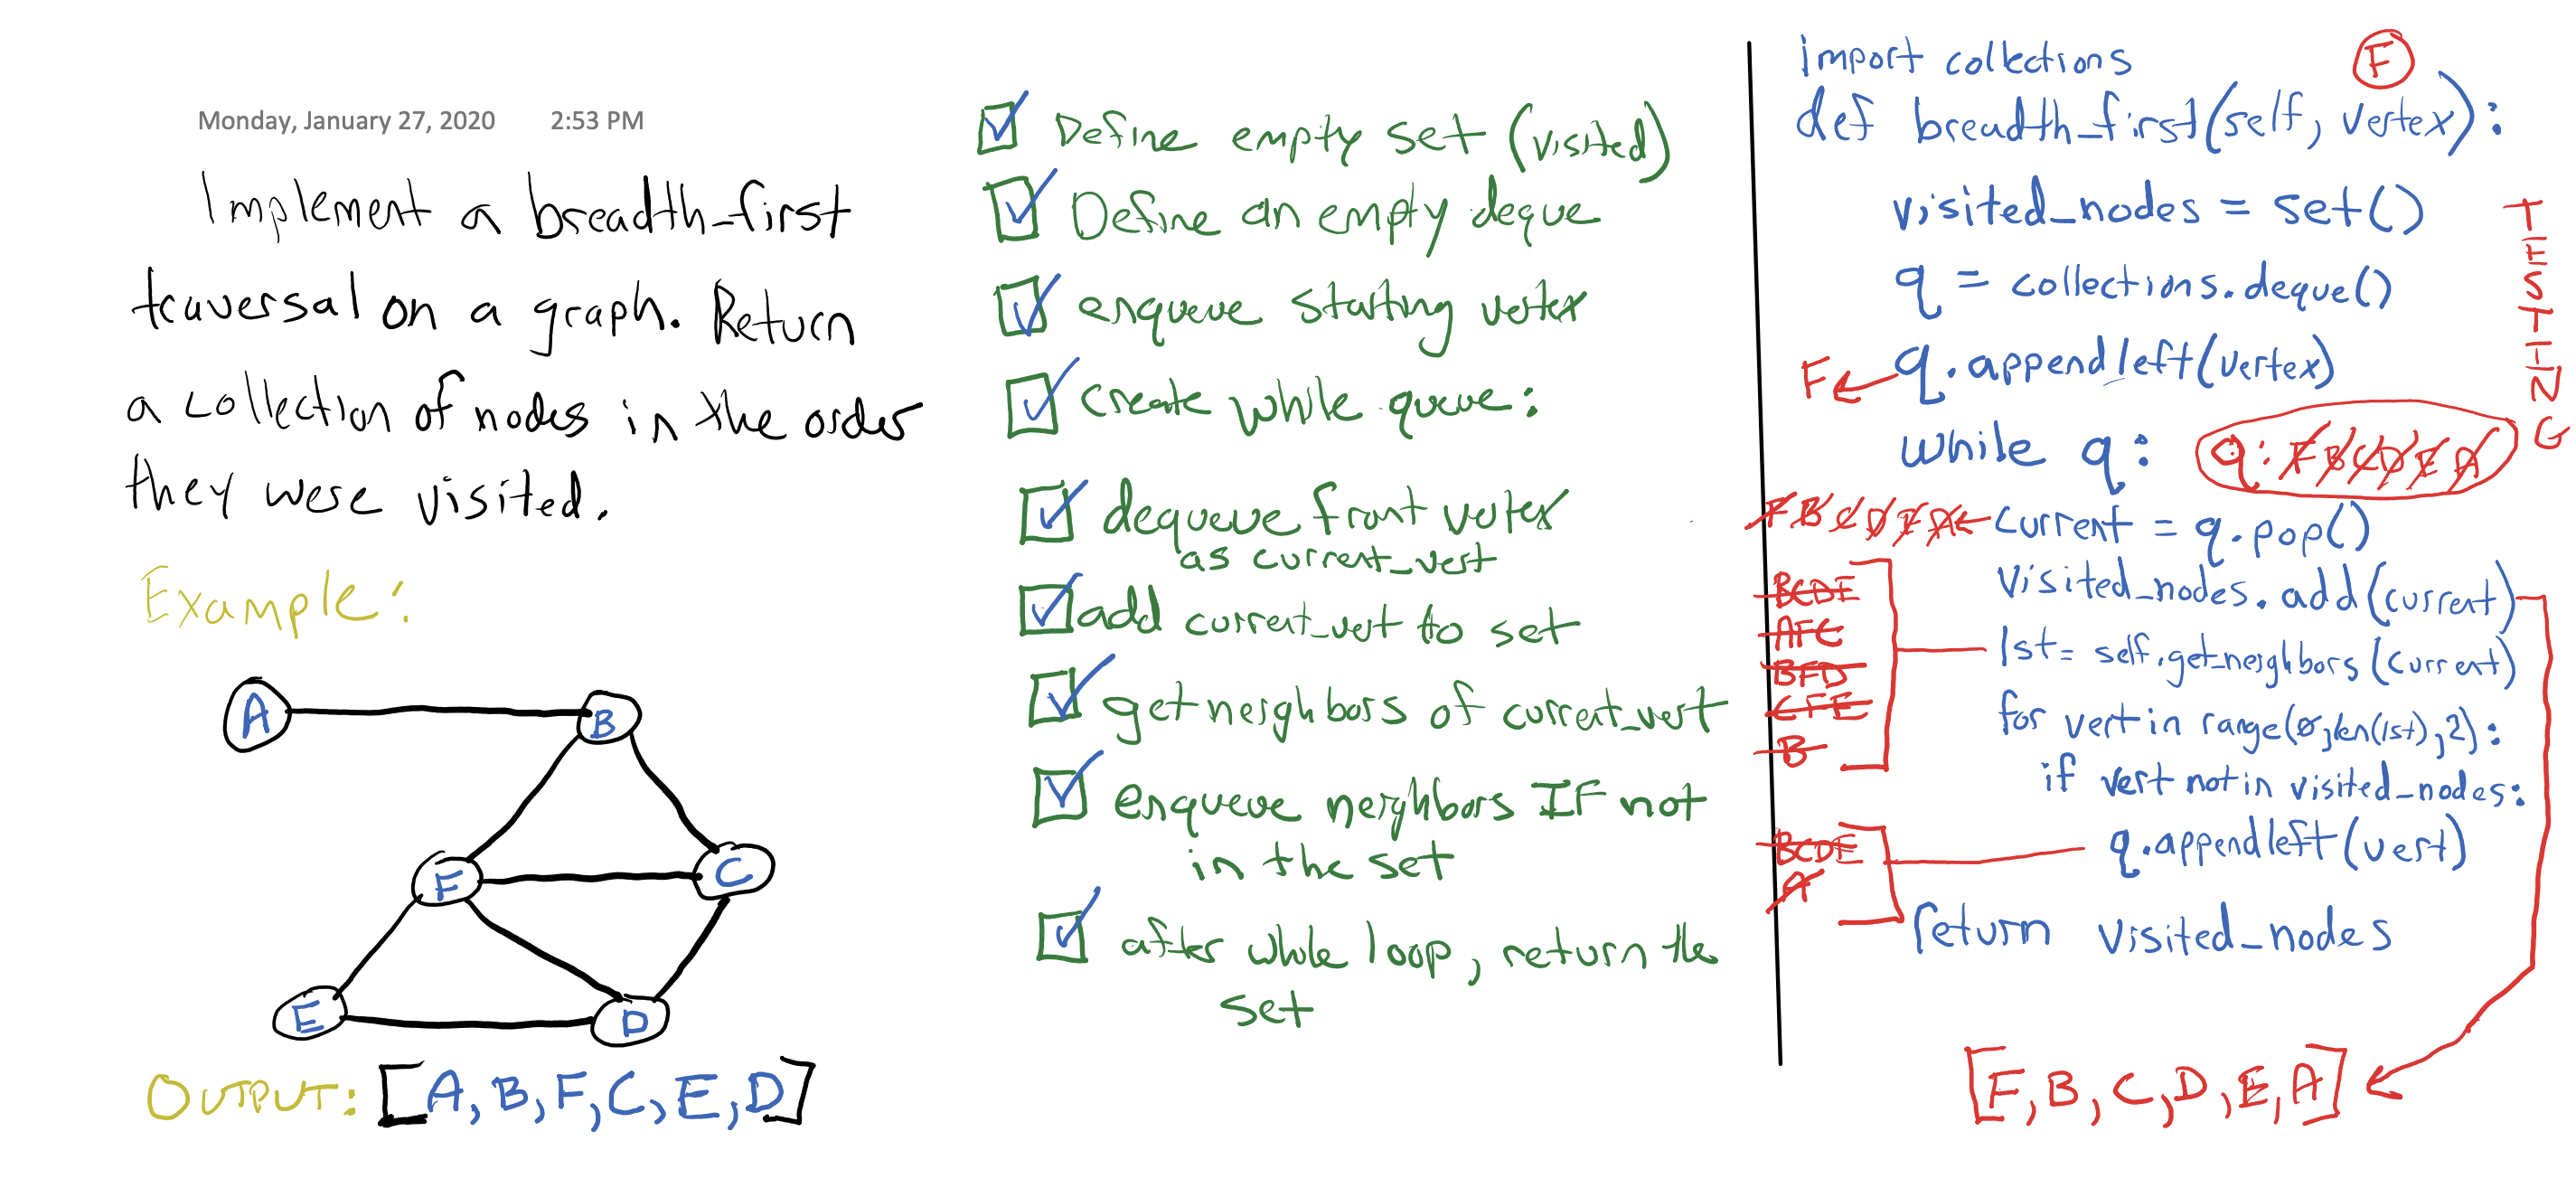 Monday, January 27, 2020 2:53 PM
Implement a breadth_first
traversal on a graph. Return
a collection of nodes in the order
they were visited.
Example:
A
B
F
C
E
D
OUTPUT: [A, B, F, C, E, D]
Define empty set (visited)
Define an empty deque
enqueue starting vertex
create while queue:
dequeue front vertex
as current_vert
add current_vert to set
get neighbors of current_vert
enqueue neighbors IF not
in the set
after while loop, return the
set
import collections
F
def breadth_first(self, vertex):
visited_nodes = set()
q = collections.deque()
F q.appendleft(vertex)
while q: q: F B C D E A
F B C D E A current = q.pop()
visited_nodes.add(current)
lst = self.get_neighbors(current)
for vert in range(0, len(lst), 2):
if vert not in visited_nodes:
q.appendleft(vert)
return visited_nodes
BCDE
AFC
BFD
CFE
B
BCDE
A
TESTING
[F, B, C, D, E, A]